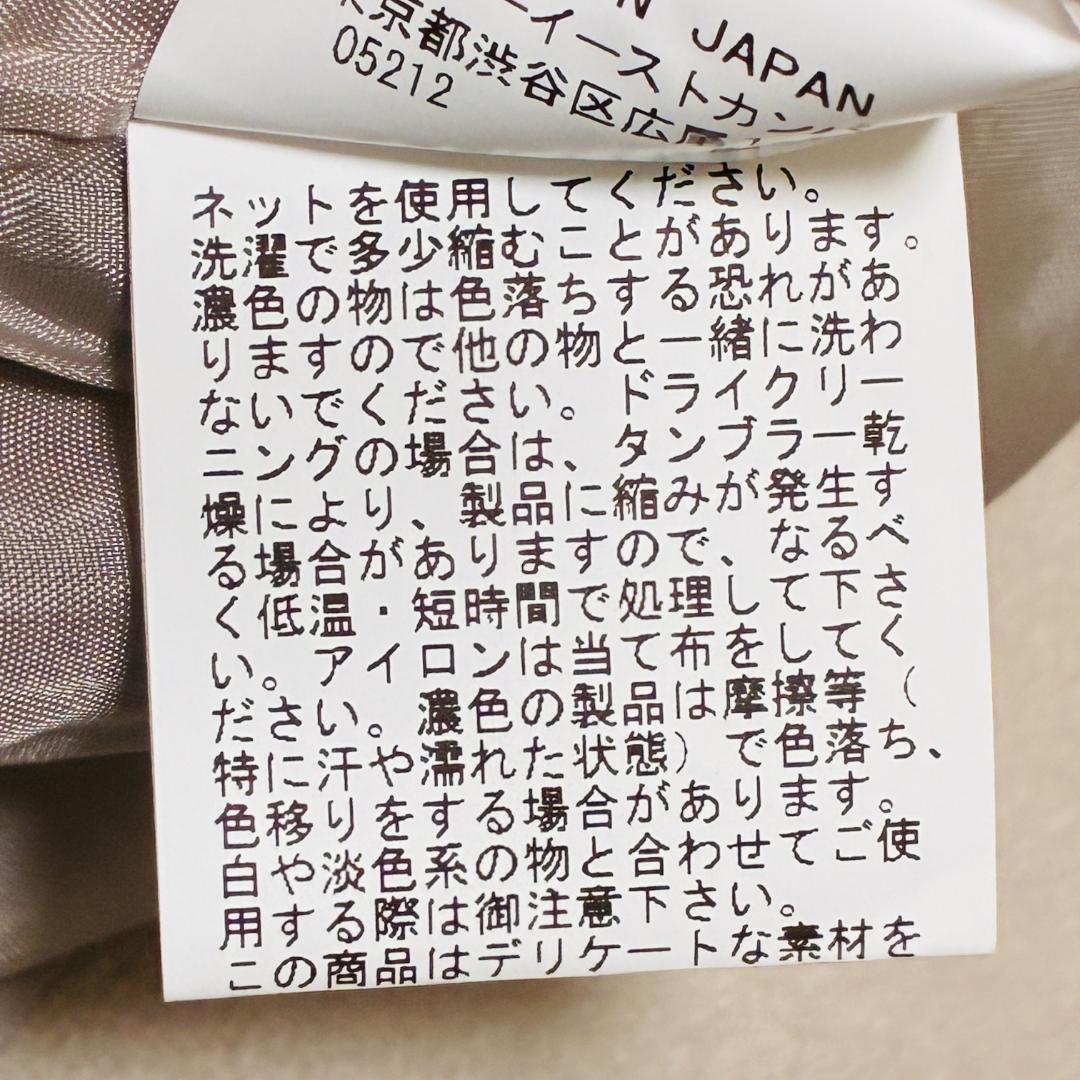 JAPAN
ーイーストカンパ
東京都渋谷区広尾
05212
ネットを使用してください。
洗濯で多少縮むことがあります。
濃色の物は色落ちする恐れがあ
りますので他の物と一緒に洗わ
ないでください。ドライクリー
ニングの場合は、タンブラー乾
燥により、製品に縮みが発生す
る場合がありますので、なるべ
く低温・短時間で処理して下さ
い。アイロンは当て布をして
ださい。濃色の製品は摩擦等(
特に汗や濡れた状態)で色落ち、
色移りをする場合があります。
白や淡色系の物と合わせてご使
用する際は御注意下さい。
この商品はデリケートな素材を